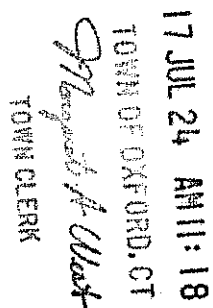 17 JUL 24 AM 11:18
TOWN OF OXFORD, CT
Margaret A. West
TOWN CLERK